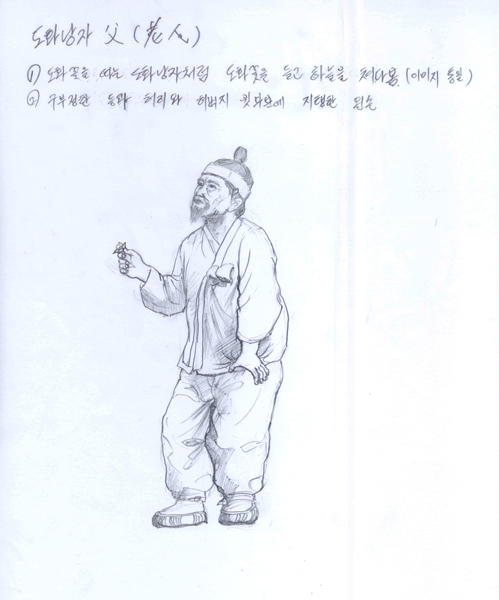 도화낭자 父 (老人)
① 도화꽃을 여는 도화낭자처럼 도화꽃을 들고 하늘을 쳐다봄. (이미지 통일)
② 구부정한 등과 허리와 허벅지 윗부분에 지탱한 왼손